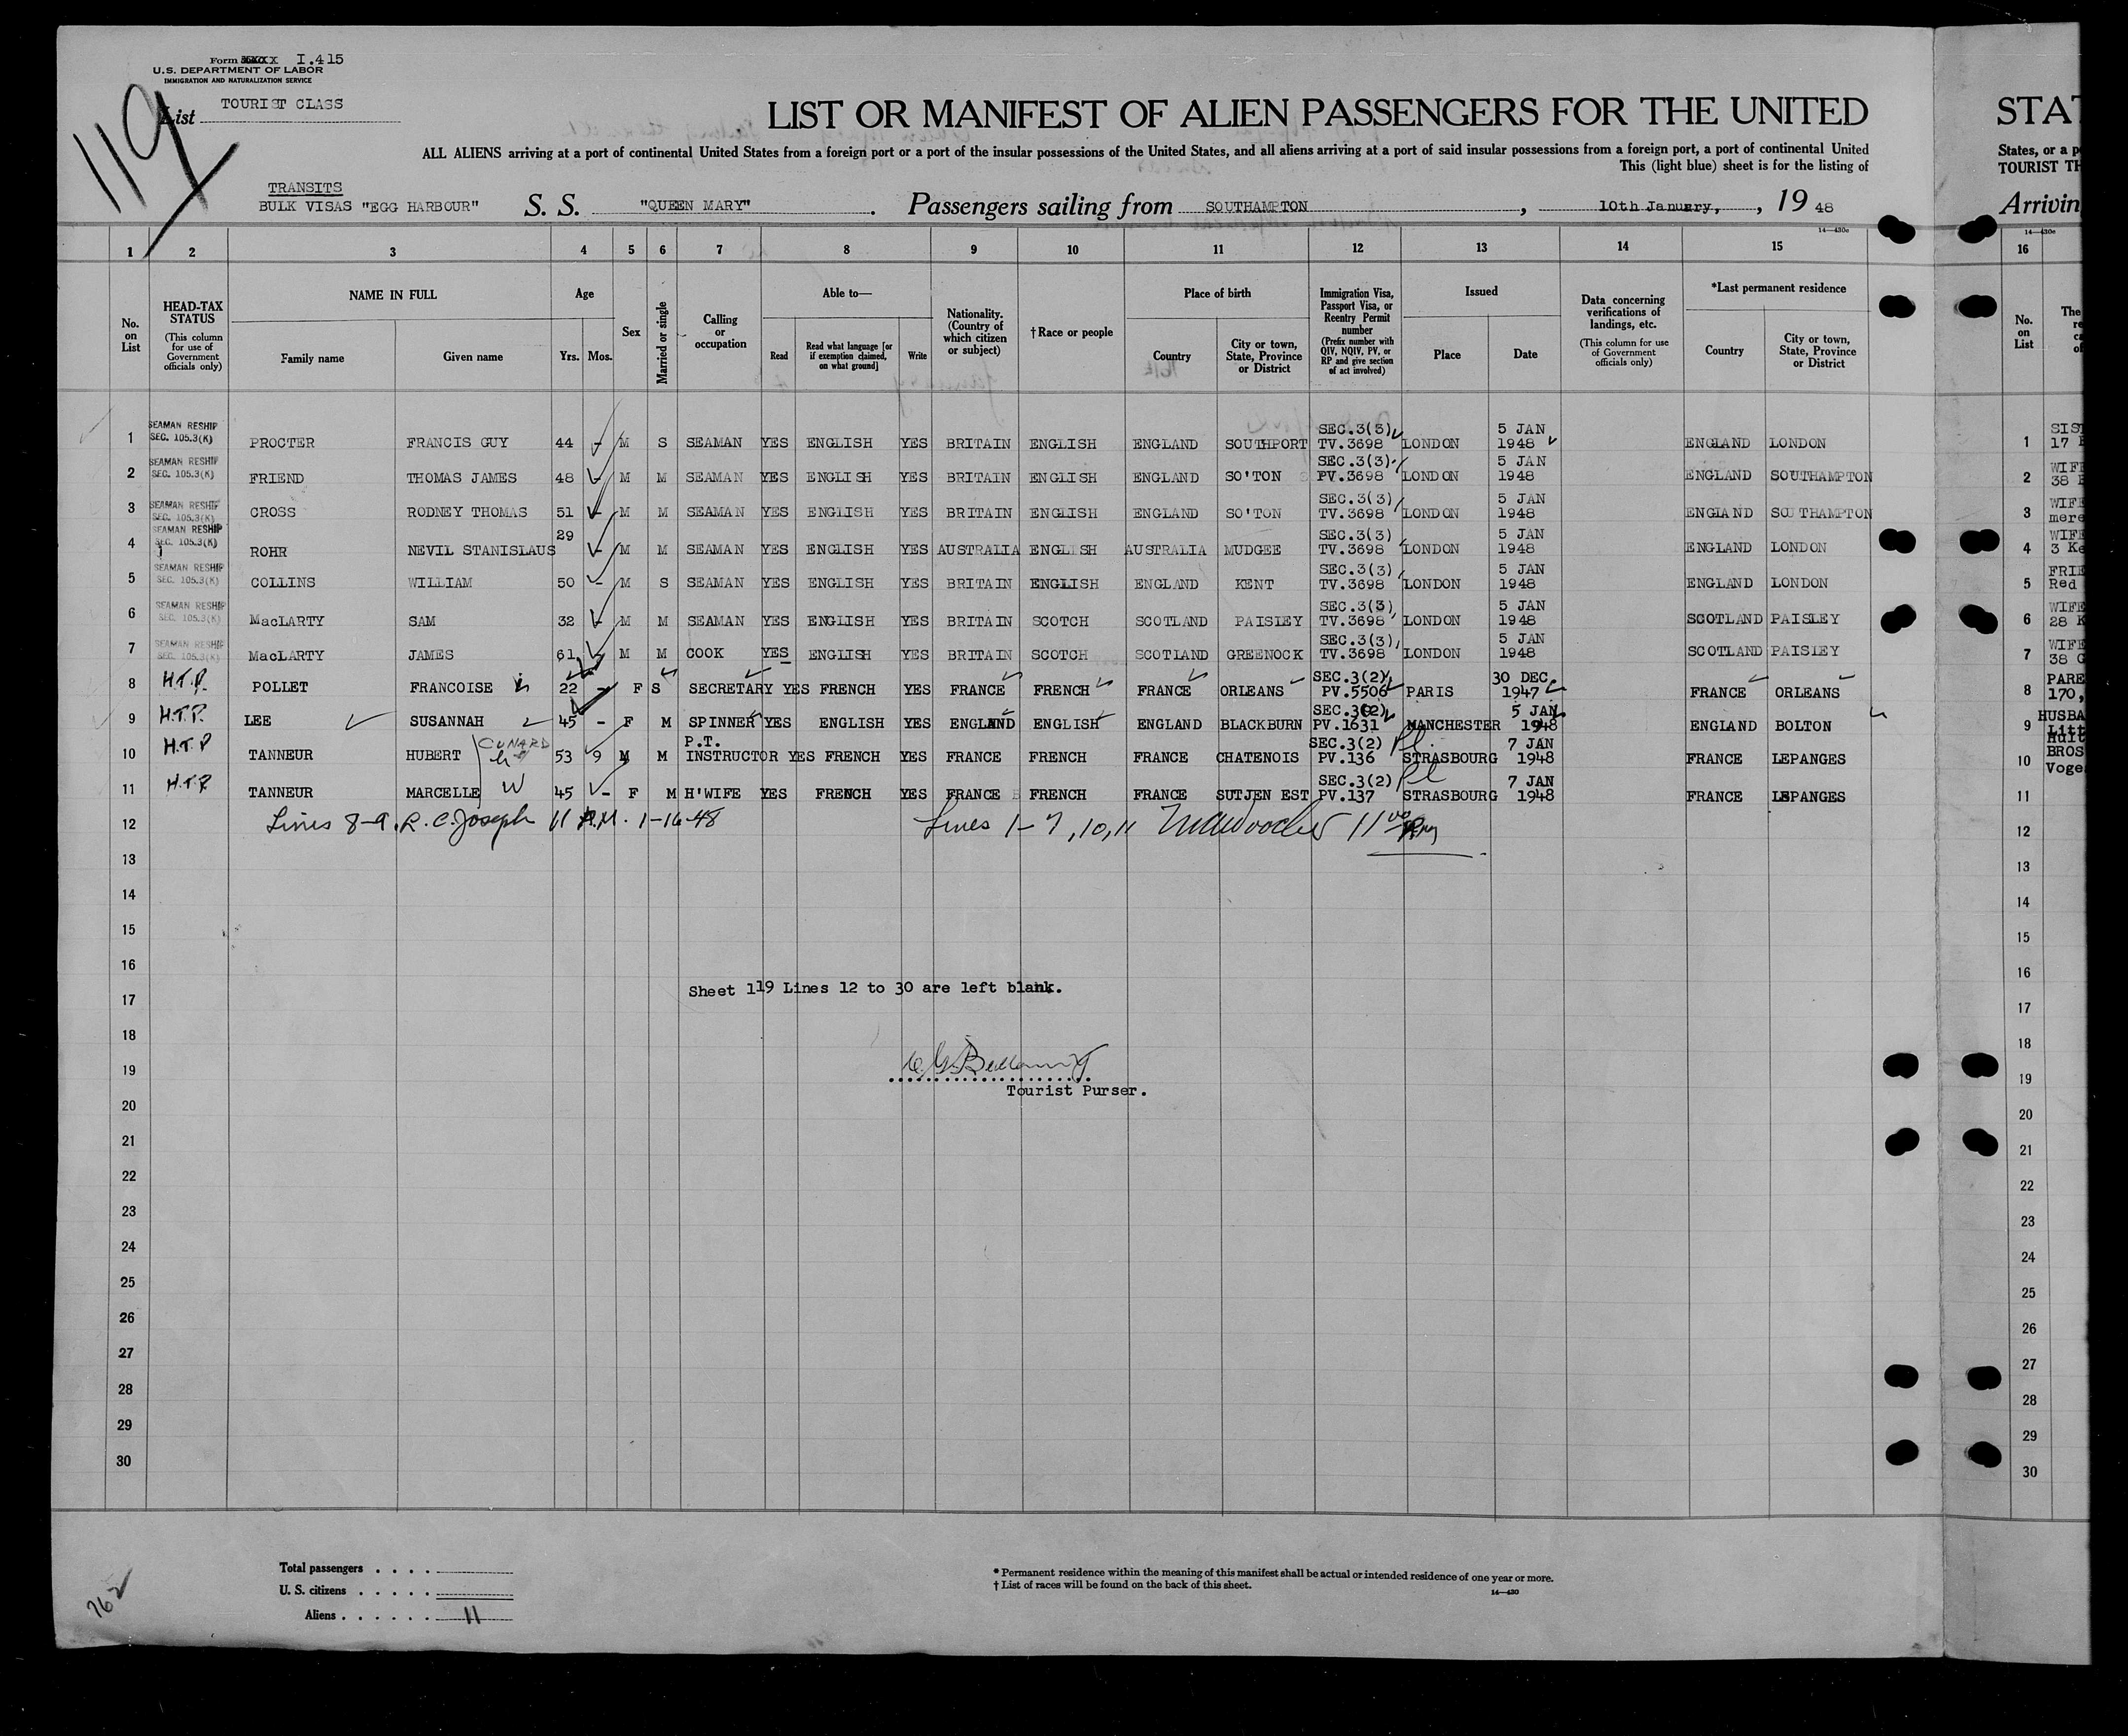 Form XXXX I.415
U.S. DEPARTMENT OF LABOR
IMMIGRATION AND NATURALIZATION SERVICE
List TOURIST CLASS
119
LIST OR MANIFEST OF ALIEN PASSENGERS FOR THE UNITED
ALL ALIENS arriving at a port of continental United States from a foreign port or a port of the insular possessions of the United States, and all aliens arriving at a port of said insular possessions from a foreign port, a port of continental United
This (light blue) sheet is for the listing of
TRANSITS
BULK VISAS "EGG HARBOUR" S. S. "QUEEN MARY". Passengers sailing from SOUTHAMPTON, 10th January, , 19 48
14—430c
1 2 3 4 5 6 7 8 9 10 11 12 13 14 15
No. on List
HEAD-TAX STATUS
(This column for use of Government officials only)
NAME IN FULL
Family name Given name
Age
Yrs. Mos.
Sex
Married or single
Calling or occupation
Able to—
Read Read what language [or if exemption claimed, on what ground] Write
Nationality. (Country of which citizen or subject)
†Race or people
Place of birth
Country City or town, State, Province or District
Immigration Visa, Passport Visa, or Reentry Permit number
(Prefix number with QIV, NQIV, PV, or RP and give section of act involved)
Issued
Place Date
Data concerning verifications of landings, etc.
(This column for use of Government officials only)
*Last permanent residence
Country City or town, State, Province or District
SEAMAN RESHIP SEC. 3(3) 5 JAN
1 SEC. 105.3(K) PROCTER FRANCIS GUY 44 - M S SEAMAN YES ENGLISH YES BRITAIN ENGLISH ENGLAND SOUTHPORT TV.3698 LONDON 1948 ENGLAND LONDON
SEAMAN RESHIP SEC.3(3) 5 JAN
2 SEC. 105.3(K) FRIEND THOMAS JAMES 48 - M M SEAMAN YES ENGLISH YES BRITAIN ENGLISH ENGLAND SO'TON PV.3698 LONDON 1948 ENGLAND SOUTHAMPTON
SEAMAN RESHIP SEC.3(3) 5 JAN
3 SEC. 105.3(K) CROSS RODNEY THOMAS 51 - M M SEAMAN YES ENGLISH YES BRITAIN ENGLISH ENGLAND SO'TON TV.3698 LONDON 1948 ENGLAND SOUTHAMPTON
SEAMAN RESHIP 29 SEC.3(3) 5 JAN
4 SEC. 105.3(K) ROHR NEVIL STANISLAUS - M M SEAMAN YES ENGLISH YES AUSTRALIA ENGLISH AUSTRALIA MUDGEE TV.3698 LONDON 1948 ENGLAND LONDON
SEAMAN RESHIP SEC.3(3) 5 JAN
5 SEC. 105.3(K) COLLINS WILLIAM 50 - M S SEAMAN YES ENGLISH YES BRITAIN ENGLISH ENGLAND KENT TV.3698 LONDON 1948 ENGLAND LONDON
SEAMAN RESHIP SEC.3(3) 5 JAN
6 SEC. 105.3(K) MacLARTY SAM 32 - M M SEAMAN YES ENGLISH YES BRITAIN SCOTCH SCOTLAND PAISLEY TV.3698 LONDON 1948 SCOTLAND PAISLEY
SEAMAN RESHIP SEC.3(3) 5 JAN
7 SEC. 105.3(K) MacLARTY JAMES 61 M M COOK YES ENGLISH YES BRITAIN SCOTCH SCOTLAND GREENOCK TV.3698 LONDON 1948 SCOTLAND PAISLEY
SEC.3(2) 30 DEC
8 H.T.P. POLLET FRANCOISE 22 - F S SECRETARY YES FRENCH YES FRANCE FRENCH FRANCE ORLEANS PV.5506 PARIS 1947 FRANCE ORLEANS
SEC.3(2) 5 JAN
9 H.T.P. LEE SUSANNAH 45 - F M SPINNER YES ENGLISH YES ENGLAND ENGLISH ENGLAND BLACKBURN PV.1631 MANCHESTER 1948 ENGLAND BOLTON
CUNARD P.T. SEC.3(2) 7 JAN
10 H.T.P TANNEUR HUBERT 53 9 M M INSTRUCTOR YES FRENCH YES FRANCE FRENCH FRANCE CHATENOIS PV.136 STRASBOURG 1948 FRANCE LEPANGES
SEC.3(2) 7 JAN
11 H.T.P. TANNEUR MARCELLE W 45 - F M H'WIFE YES FRENCH YES FRANCE FRENCH FRANCE SUTJEN EST PV.137 STRASBOURG 1948 FRANCE LEPANGES
12 Lines 8-9. R.C. Joseph 11 A.M. 1-16-48 Lines 1-7, 10, 11 11 00
13
14
15
16
Sheet 119 Lines 12 to 30 are left blank.
17
18
19
Tourist Purser.
20
21
22
23
24
25
26
27
28
29
30
Total passengers . . . .
U. S. citizens . . . . .
Aliens . . . . . . 11
762
* Permanent residence within the meaning of this manifest shall be actual or intended residence of one year or more.
† List of races will be found on the back of this sheet.
14—430
STAT
States, or a p
TOURIST TH
Arrivin
14—430c
16
No. on List
The
re
ca
of
SIS
1 17
WIFE
2 38
WIFE
3 mere
WIFE
4 3 Ke
FRIE
5 Red
WIFE
6 28 K
WIFE
7 38 G
PARE
8 170,
HUSBA
9 Litt
Hult
BROS
10 Voge
11
12
13
14
15
16
17
18
19
20
21
22
23
24
25
26
27
28
29
30